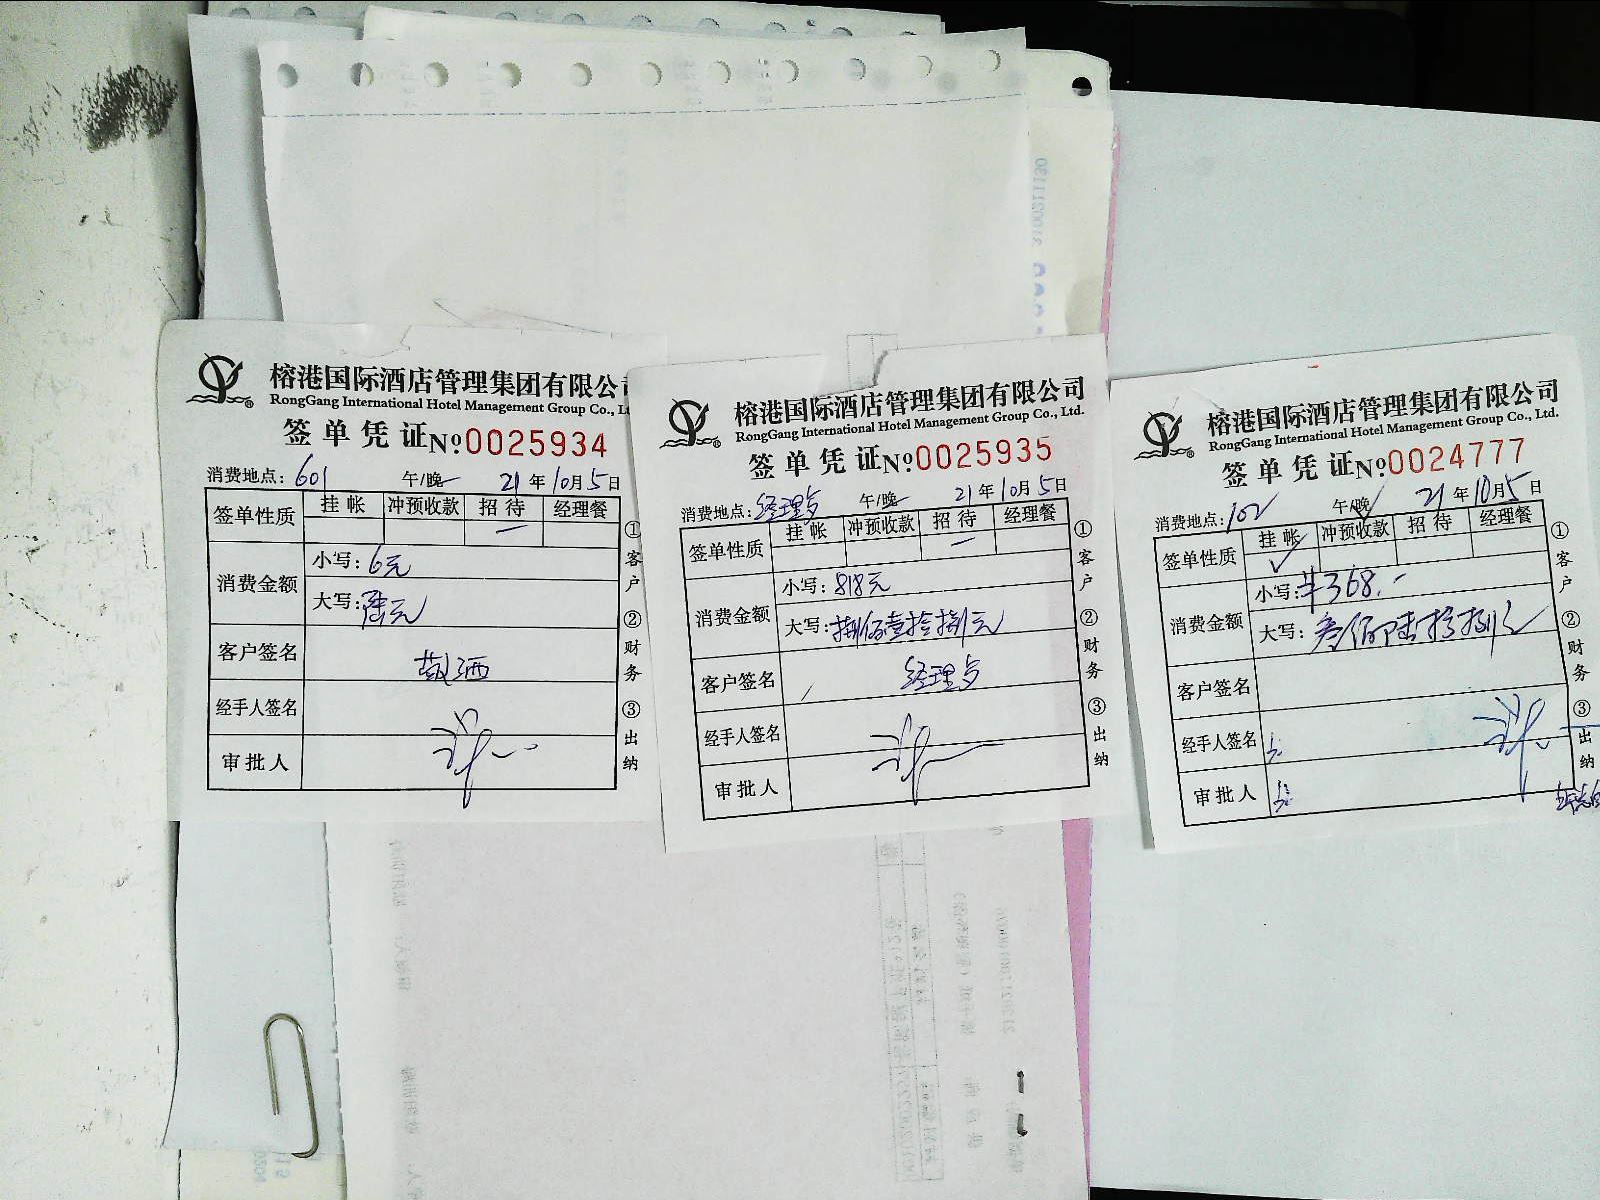 榕港国际酒店管理集团有限公司
RongGang International Hotel Management Group Co., Lt
签单凭证 No.0025934
消费地点:601 午/晚 21年10月5日
签单性质 挂帐 冲预收款 招待 经理餐
消费金额
小写:6元
大写:陆元
客户签名 敬酒
经手人签名
审批人
①客户 ②财务 ③出纳
榕港国际酒店管理集团有限公司
RongGang International Hotel Management Group Co., Ltd.
签单凭证 No.0025935
消费地点:经理 午/晚 21年10月5日
签单性质 挂帐 冲预收款 招待 经理餐
消费金额
小写:818元
大写:捌佰壹拾捌元
客户签名 经理
经手人签名
审批人
①客户 ②财务 ③出纳
榕港国际酒店管理集团有限公司
RongGang International Hotel Management Group Co., Ltd.
签单凭证 No.0024777
消费地点:102 午/晚 21年10月5日
签单性质 挂帐✓ 冲预收款 招待 经理餐
消费金额
小写:¥368.-
大写:叁佰陆拾捌元
客户签名
经手人签名
审批人
①客户 ②财务 ③出纳